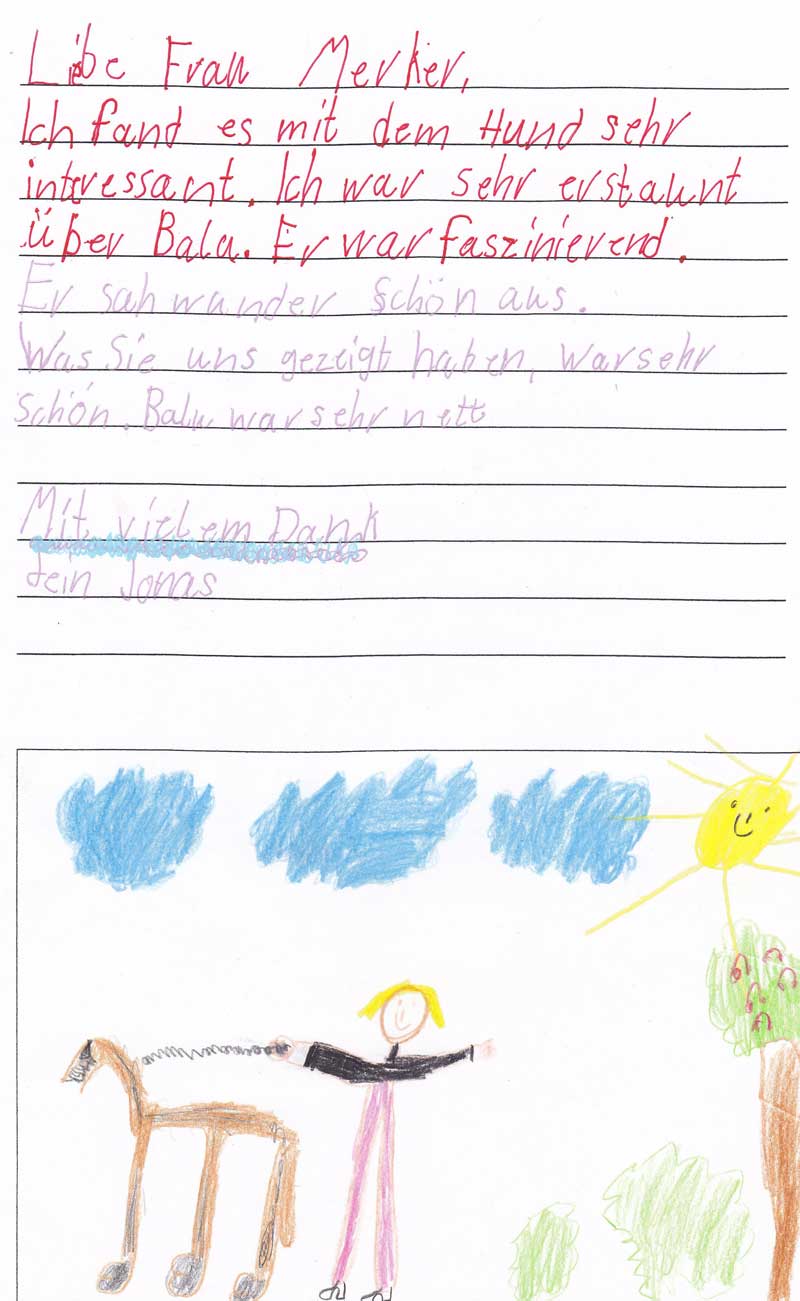 Liebe Frau Merker,
Ich fand es mit dem Hund sehr
interessant. Ich war sehr erstaunt
über Balu. Er war faszinierend.
Er sah wunder schön aus.
Was Sie uns gezeigt haben, war sehr
schön. Balu war sehr nett
Mit vielem Dank
dein Jonas